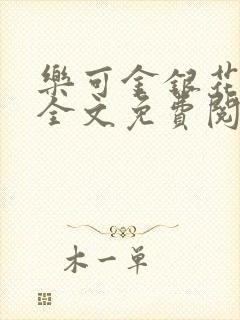 樂可金銀花
全文免費閱
木一單